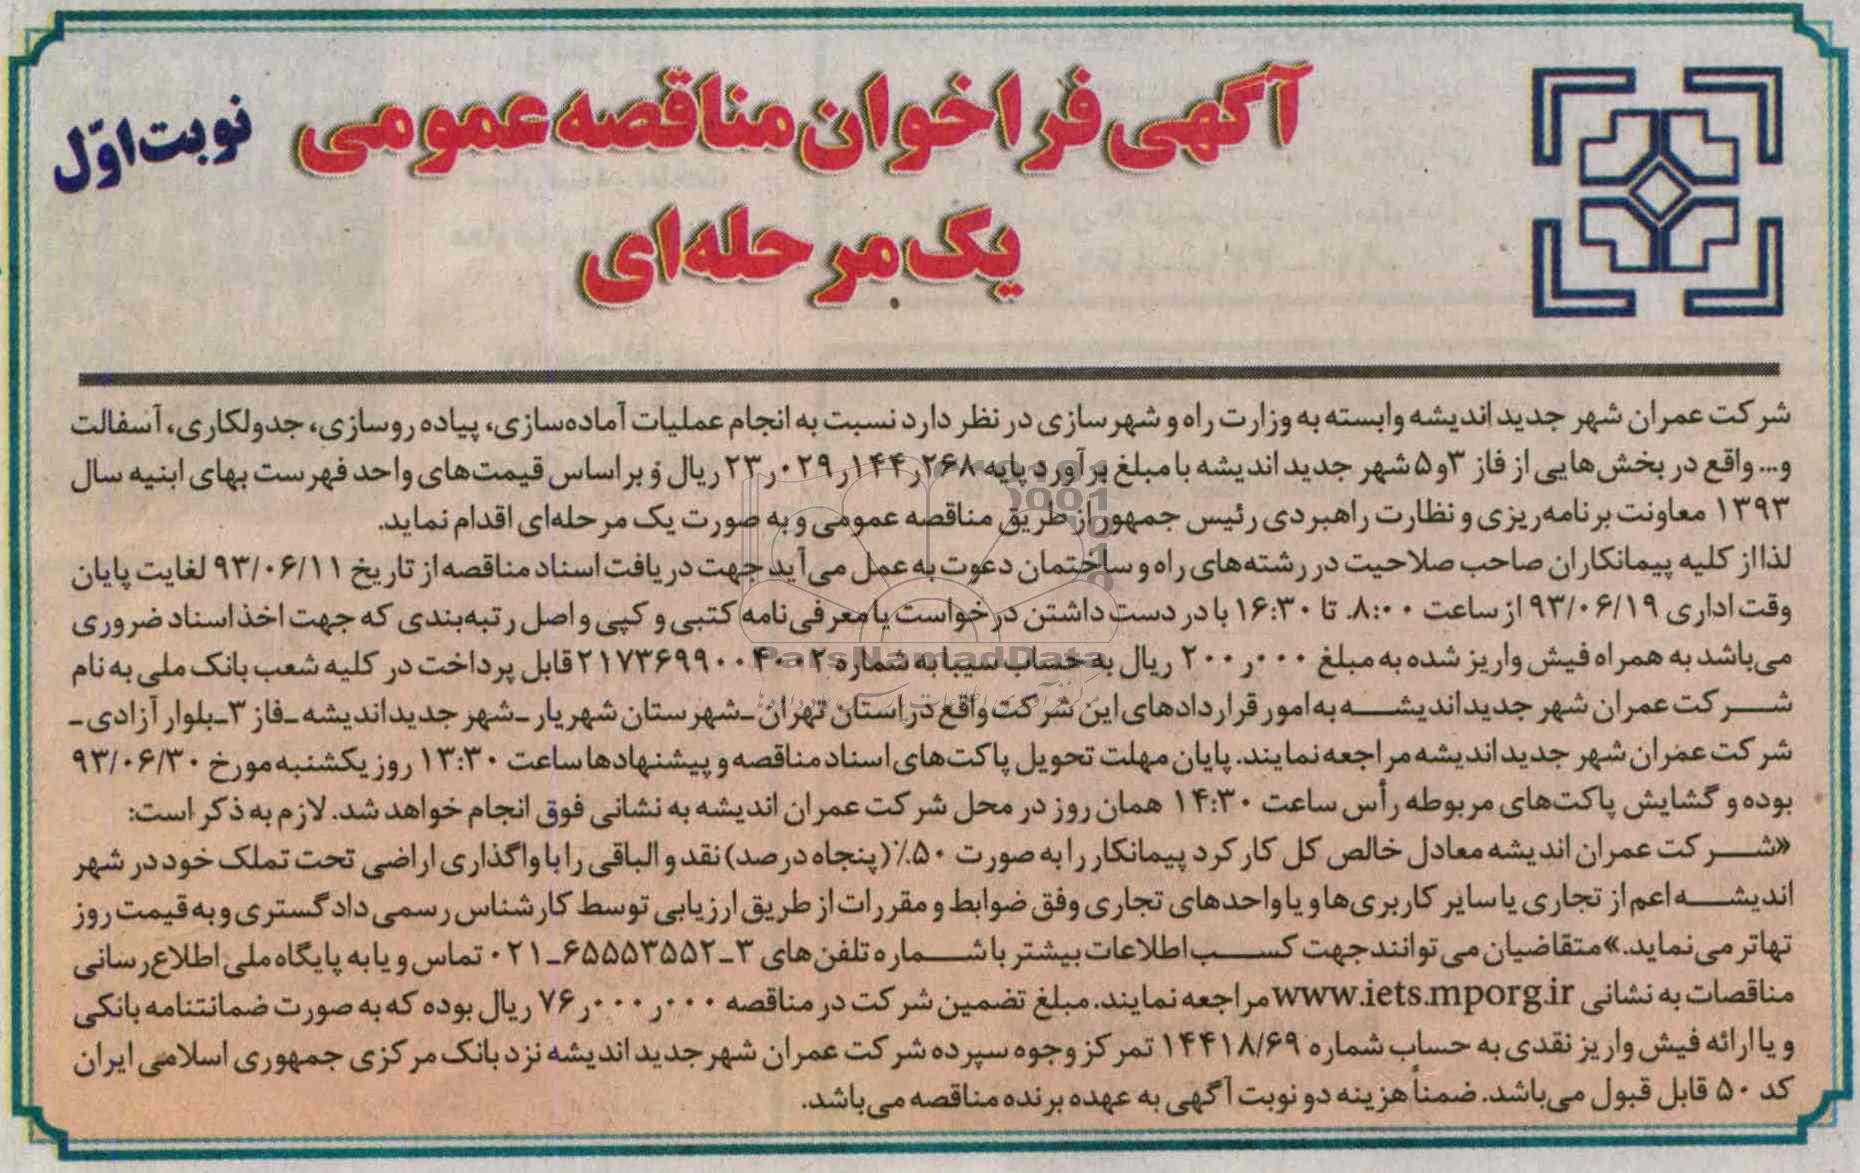 آگهی فراخوان مناقصه عمومی
یک مرحله‌ای
نوبت اوّل
شرکت عمران شهر جدید اندیشه وابسته به وزارت راه و شهرسازی در نظر دارد نسبت به انجام عملیات آماده‌سازی، پیاده روسازی، جدولکاری، آسفالت
و... واقع در بخش‌هایی از فاز ۳و۵ شهر جدید اندیشه با مبلغ برآورد پایه ۲۳ر۰۲۹ر۱۴۴ر۲۶۸ ریال و براساس قیمت‌های واحد فهرست بهای ابنیه سال
۱۳۹۳ معاونت برنامه‌ریزی و نظارت راهبردی رئیس جمهور از طریق مناقصه عمومی و به صورت یک مرحله‌ای اقدام نماید.
لذا از کلیه پیمانکاران صاحب صلاحیت در رشته‌های راه و ساختمان دعوت به عمل می‌آید جهت دریافت اسناد مناقصه از تاریخ ۹۳/۰۶/۱۱ لغایت پایان
وقت اداری ۹۳/۰۶/۱۹ از ساعت ۸:۰۰ تا ۱۶:۳۰ با در دست داشتن درخواست یا معرفی‌نامه کتبی و کپی و اصل رتبه‌بندی که جهت اخذ اسناد ضروری
می‌باشد به همراه فیش واریز شده به مبلغ ۲۰۰ر۰۰۰ ریال به حساب سیبا به شماره ۲۱۷۳۶۹۹۰۰۴۰۰۲ قابل پرداخت در کلیه شعب بانک ملی به نام
شرکت عمران شهر جدید اندیشه به امور قراردادهای این شرکت واقع در استان تهران ـ شهرستان شهریار ـ شهر جدید اندیشه ـ فاز ۳ ـ بلوار آزادی ـ
شرکت عمران شهر جدید اندیشه مراجعه نمایند. پایان مهلت تحویل پاکت‌های اسناد مناقصه و پیشنهادها ساعت ۱۳:۳۰ روز یکشنبه مورخ ۹۳/۰۶/۳۰
بوده و گشایش پاکت‌های مربوطه رأس ساعت ۱۴:۳۰ همان روز در محل شرکت عمران اندیشه به نشانی فوق انجام خواهد شد. لازم به ذکر است:
«شرکت عمران اندیشه معادل خالص کل کارکرد پیمانکار را به صورت ۵۰٪ (پنجاه درصد) نقد و الباقی را با واگذاری اراضی تحت تملک خود در شهر
اندیشه اعم از تجاری یا سایر کاربری‌ها و یا واحدهای تجاری وفق ضوابط و مقررات از طریق ارزیابی توسط کارشناس رسمی دادگستری و به قیمت روز
تهاتر می‌نماید.» متقاضیان می‌توانند جهت کسب اطلاعات بیشتر با شماره تلفن‌های ۳ـ۶۵۵۵۳۵۵۲ـ۰۲۱ تماس و یا به پایگاه ملی اطلاع‌رسانی
مناقصات به نشانی www.iets.mporg.ir مراجعه نمایند. مبلغ تضمین شرکت در مناقصه ۷۶ر۰۰۰ر۰۰۰ ریال بوده که به صورت ضمانتنامه بانکی
و یا ارائه فیش واریز نقدی به حساب شماره ۱۴۴۱۸/۶۹ تمرکز وجوه سپرده شرکت عمران شهر جدید اندیشه نزد بانک مرکزی جمهوری اسلامی ایران
کد ۵۰ قابل قبول می‌باشد. ضمناً هزینه دو نوبت آگهی به عهده برنده مناقصه می‌باشد.
ParsNamadData